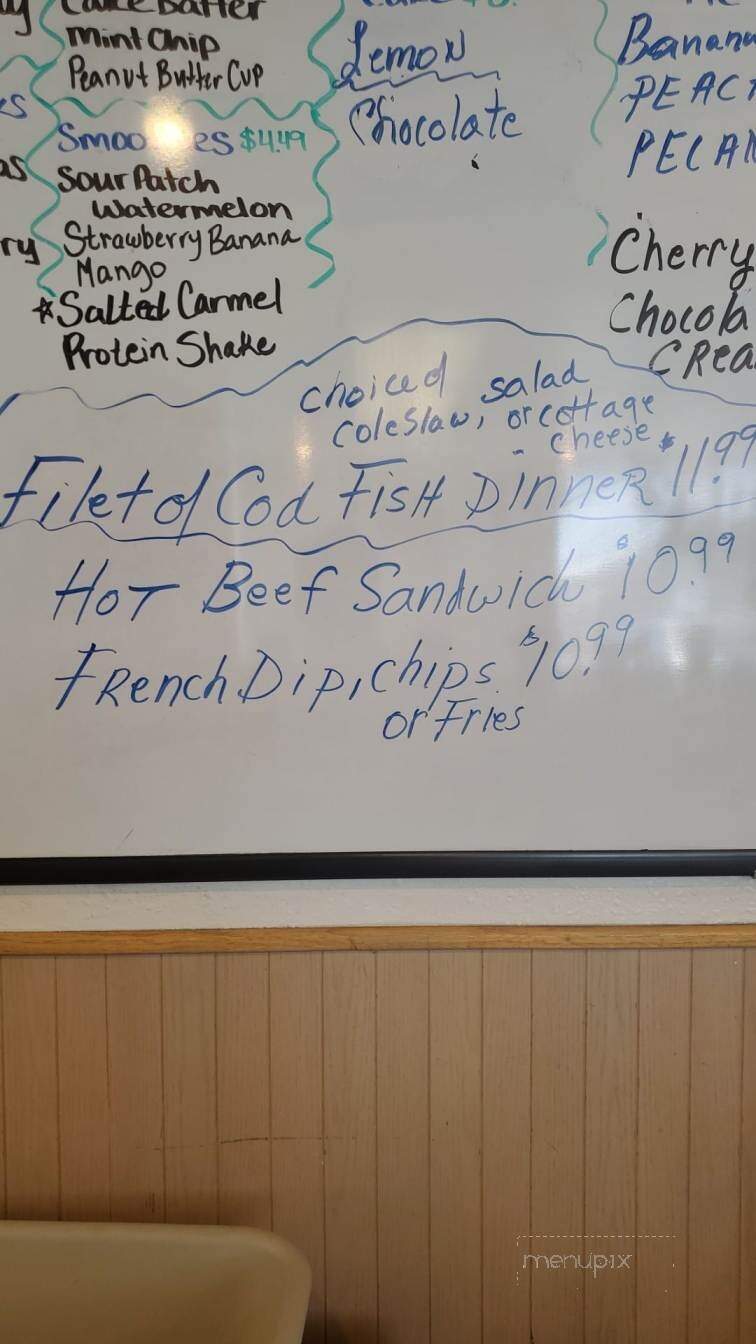 Cake Batter
Mint Chip
Peanut Butter Cup
Lemon
Chocolate
Smoo es $4.49
Sour Patch
Watermelon
Strawberry Banana
Mango
☆Salted Carmel
Protein Shake
Banana
PEAC
PECAN
Cherry
Chocola
CREA
choice of salad
coleslaw, or cottage
cheese
Filet of Cod FISH DINNER $11.99
HOT Beef Sandwich $10.99
French Dip, chips $10.99
or Fries
menupix